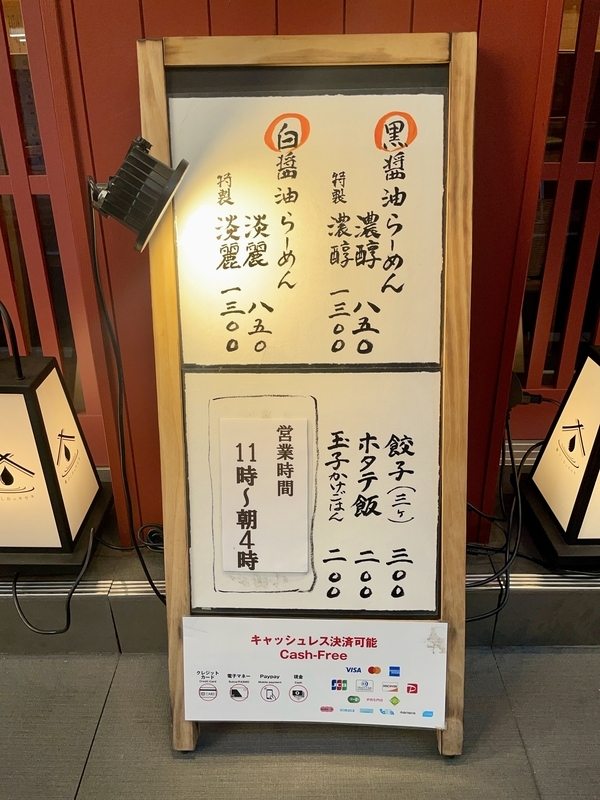 黒醤油らーめん
濃醇 八五〇
特製 濃醇 一三〇〇
白醤油らーめん
淡麗 八五〇
特製 淡麗 一三〇〇
餃子(三ヶ) 三〇〇
ホタテ飯 二〇〇
玉子かけごはん 二〇〇
営業時間
11時〜朝4時
キャッシュレス決済可能
Cash-Free
クレジットカード
電子マネー
Paypay
現金
VISA
JCB